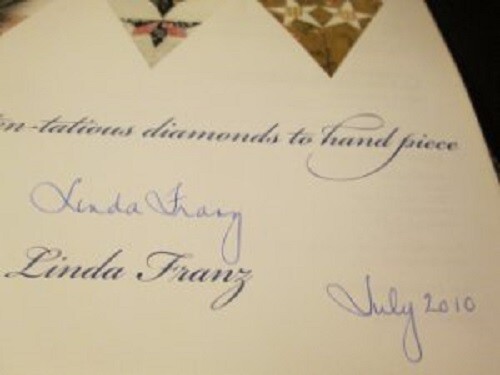 n-tatious diamonds to hand piece
Linda Franz
Linda Franz
July 2010